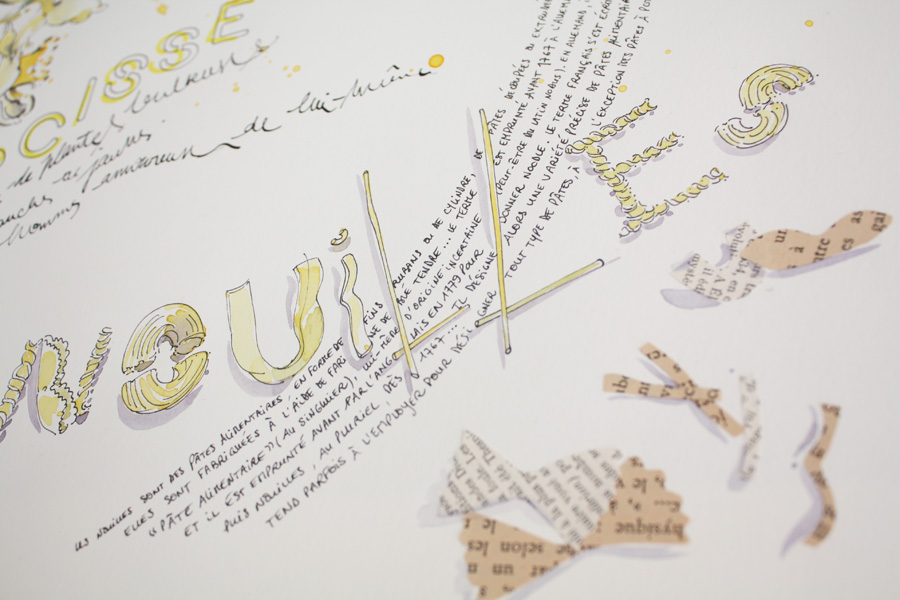 OCISSE
de plantes bulbeuses
anches et jaunes.
homme amoureux de lui-même
NOUILLES
LES NOUILLES SONT DES PÂTES ALIMENTAIRES EN FORME DE FINS RUBANS OU DE CYLINDRE, DE PÂTES DÉCOUPÉES OU EXTRUDÉES
ELLES SONT FABRIQUÉES À L'AIDE DE FARINE DE BLÉ TENDRE... LE TERME EST EMPRUNTÉ AVANT 1767 À L'ALLEMA
"PÂTE ALIMENTAIRE" (AU SINGULIER), LUI-MÊME D'ORIGINE INCERTAINE (PEUT-ÊTRE DU LATIN NODUS). EN ALLEMAND,
ET IL EST EMPRUNTÉ AVANT PAR L'ANGLAIS EN 1779 POUR DONNER NOODLE. LE TERME FRANÇAIS S'EST ÉCRI
PUIS NOUILLES, AU PLURIEL, DÈS 1767... IL DÉSIGNE ALORS UNE VARIÉTÉ PRÉCISE DE PÂTES ALIMENTAIRE
TEND PARFOIS À L'EMPLOYER POUR DÉSIGNER TOUT TYPE DE PÂTES À L'EXCEPTION DES PÂTES À PO
hysique
par un
les selon le